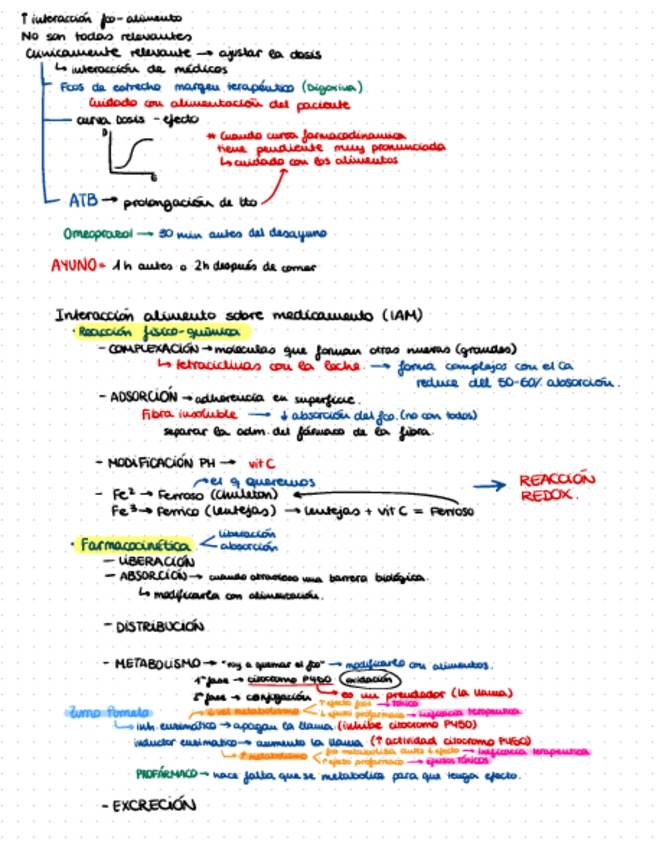 ↑ interacción fco-alimento
No son todas relevantes
Clínicamente relevante → ajustar la dosis
↳ interacción de médicos
Fcos de estrecho margen terapéutico (Digoxina)
Cuidado con alimentación del paciente
curva Dosis - efecto
D
E
* Cuando curva farmacodinamica
tiene pendiente muy pronunciada
↳ cuidado con los alimentos
ATB → prolongación de tto
Omeprazol → 30 min antes del desayuno
AYUNO = 1h antes o 2h después de comer
Interacción alimento sobre medicamento (IAM)
· Reacción físico-química
- COMPLEXACIÓN → moleculas que forman otras nuevas (grandes)
↳ tetraciclinas con la leche. → forma complejos con el Ca
reduce del 50-60% absorción.
- ADSORCIÓN → adherencia en superficie.
Fibra insoluble → ↓ absorción del fco. (no con todos)
separar la adm. del fármaco de la fibra.
- MODIFICACIÓN PH → vit C
el q queremos
- Fe² → Ferroso (chuleton)
Fe³ → Ferrico (lentejas) → lentejas + vit C = Ferroso
→ REACCIÓN
REDOX.
· Farmacocinética < liberación
absorción
- LIBERACIÓN
- ABSORCIÓN → cuando atraviesa una barrera biológica.
↳ modificarla con alimentación.
- DISTRIBUCIÓN
- METABOLISMO → "voy a quemar el fco" → modificarlo con alimentos.
1ª fase → citocromo P450 (oxidación)
2ª fase → conjugación
es un prendedor (la llama)
Zumo Pomelo
↑ efecto fco → Tóxico
↓ efecto profármaco → ineficacia terapeutica
↳ inh. enzimático → apagan la llama (inhibe citocromo P450)
inductor enzimatico → aumenta la llama (↑ actividad citocromo P450)
↳ ↑ metabolismo < fco metaboliza antes ↓ efecto → ineficacia terapeutica
↑ efecto profármaco → efectos TÓXICOS
PROFÁRMACO → hace falta que se metabolice para que tenga efecto.
- EXCRECIÓN